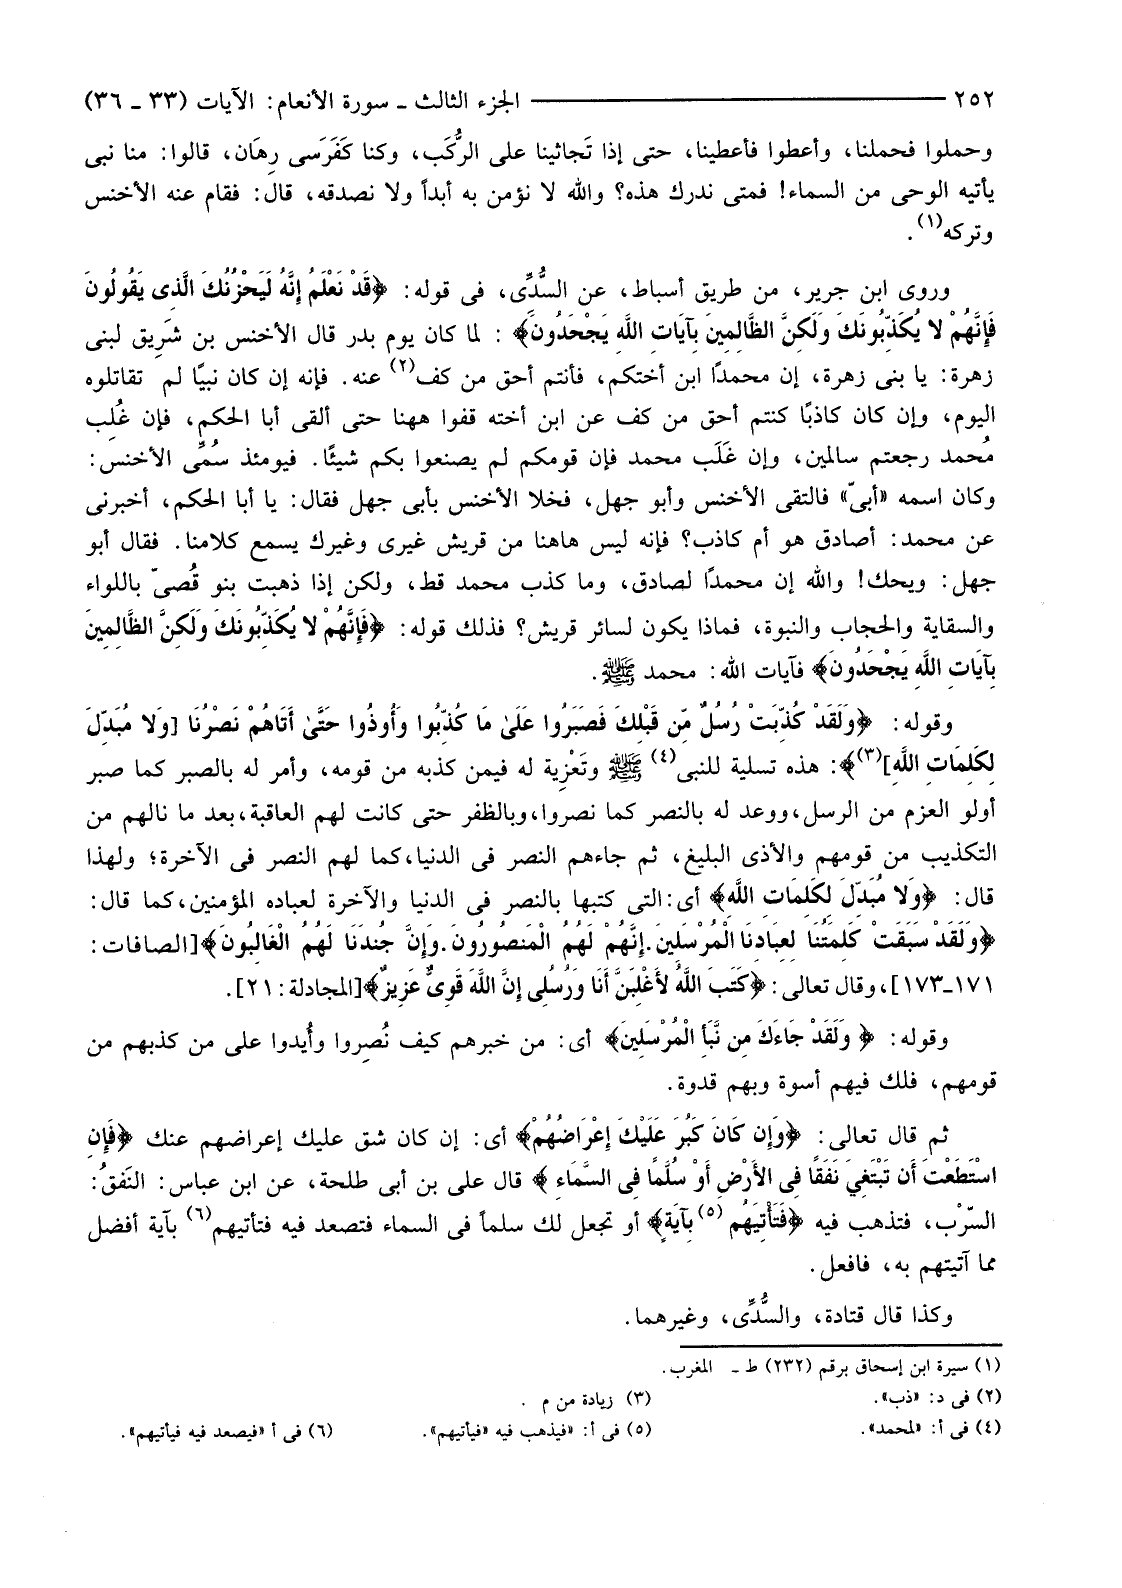 ٢٥٢ ــــــــــــــــ الجزء الثالث ـ سورة الأنعام: الآيات (٣٣ ـ ٣٦)
وحملوا فحملنا، وأعطوا فأعطينا، حتى إذا تَجاثينا على الرُّكَب، وكنا كَفَرَسى رِهَان، قالوا: منا نبى
يأتيه الوحى من السماء! فمتى ندرك هذه؟ والله لا نؤمن به أبداً ولا نصدقه، قال: فقام عنه الأخنس
وتركه(١).
وروى ابن جرير، من طريق أسباط، عن السُّدِّى، فى قوله: ﴿قَدْ نَعْلَمُ إِنَّهُ لَيَحْزُنُكَ الَّذِى يَقُولُونَ
فَإِنَّهُمْ لا يُكَذِّبُونَكَ وَلَكِنَّ الظَّالِمِينَ بِآيَاتِ اللَّهِ يَجْحَدُونَ﴾ : لما كان يوم بدر قال الأخنس بن شَرِيق لبنى
زهرة: يا بنى زهرة، إن محمدًا ابن أختكم، فأنتم أحق من كف(٢) عنه. فإنه إن كان نبيًا لم تقاتلوه
اليوم، وإن كان كاذبًا كنتم أحق من كف عن ابن أخته قفوا ههنا حتى ألقى أبا الحكم، فإن غُلِب
مُحمد رجعتم سالمين، وإن غَلَب محمد فإن قومكم لم يصنعوا بكم شيئًا. فيومئذ سُمِّى الأخنس:
وكان اسمه «أبىّ» فالتقى الأخنس وأبو جهل، فخلا الأخنس بأبى جهل فقال: يا أبا الحكم، أخبرنى
عن محمد: أصادق هو أم كاذب؟ فإنه ليس هاهنا من قريش غيرى وغيرك يسمع كلامنا. فقال أبو
جهل: ويحك! والله إن محمدًا لصادق، وما كذب محمد قط، ولكن إذا ذهبت بنو قُصىّ باللواء
والسقاية والحجاب والنبوة، فماذا يكون لسائر قريش؟ فذلك قوله: ﴿فَإِنَّهُمْ لا يُكَذِّبُونَكَ وَلَكِنَّ الظَّالِمِينَ
بِآيَاتِ اللَّهِ يَجْحَدُونَ﴾ فآيات الله: محمد ﷺ.
وقوله: ﴿وَلَقَدْ كُذِّبَتْ رُسُلٌ مِّن قَبْلِكَ فَصَبَرُوا عَلَىٰ مَا كُذِّبُوا وَأُوذُوا حَتَّىٰ أَتَاهُمْ نَصْرُنَا [وَلا مُبَدِّلَ
لِكَلِمَاتِ اللَّهِ](٣)﴾: هذه تسلية للنبى(٤) ﷺ وتَعْزِية له فيمن كذبه من قومه، وأمر له بالصبر كما صبر
أولو العزم من الرسل،ووعد له بالنصر كما نصروا،وبالظفر حتى كانت لهم العاقبة،بعد ما نالهم من
التكذيب من قومهم والأذى البليغ، ثم جاءهم النصر فى الدنيا،كما لهم النصر فى الآخرة؛ ولهذا
قال: ﴿وَلا مُبَدِّلَ لِكَلِمَاتِ اللَّهِ﴾ أى:التى كتبها بالنصر فى الدنيا والآخرة لعباده المؤمنين،كما قال:
﴿وَلَقَدْ سَبَقَتْ كَلِمَتُنَا لِعِبَادِنَا الْمُرْسَلِينَ.إِنَّهُمْ لَهُمُ الْمَنصُورُونَ.وَإِنَّ جُندَنَا لَهُمُ الْغَالِبُونَ﴾[الصافات:
١٧١ـ١٧٣]،وقال تعالى: ﴿كَتَبَ اللَّهُ لأَغْلِبَنَّ أَنَا وَرُسُلِى إِنَّ اللَّهَ قَوِىٌّ عَزِيزٌ﴾[المجادلة:٢١].
وقوله: ﴿ وَلَقَدْ جَاءَكَ مِن نَّبَأِ الْمُرْسَلِينَ﴾ أى: من خبرهم كيف نُصِروا وأُيدوا على من كذبهم من
قومهم، فلك فيهم أسوة وبهم قدوة.
ثم قال تعالى: ﴿وَإِن كَانَ كَبُرَ عَلَيْكَ إِعْرَاضُهُمْ﴾ أى: إن كان شق عليك إعراضهم عنك ﴿فَإِنِ
اسْتَطَعْتَ أَن تَبْتَغِيَ نَفَقًا فِى الأَرْضِ أَوْ سُلَّمًا فِى السَّمَاءِ ﴾ قال على بن أبى طلحة، عن ابن عباس: النَفقُ:
السِّرْب، فتذهب فيه ﴿فَتَأْتِيَهُم (٥)بِآيَةٍ﴾ أو تجعل لك سلماً فى السماء فتصعد فيه فتأتيهم(٦) بآية أفضل
مما آتيتهم به، فافعل.
وكذا قال قتادة، والسُّدِّى، وغيرهما.
(١) سيرة ابن إسحاق برقم (٢٣٢) ط ـ المغرب.
(٢) فى د: «ذب». (٣) زيادة من م .
(٤) فى أ: «لمحمد». (٥) فى أ: «فيذهب فيه «فيأتيهم». (٦) فى أ «فيصعد فيه فيأتيهم».